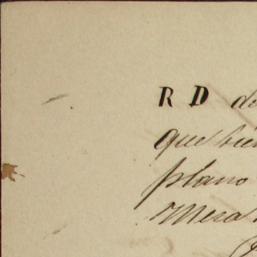 R D de
que bien
plano
Mesa